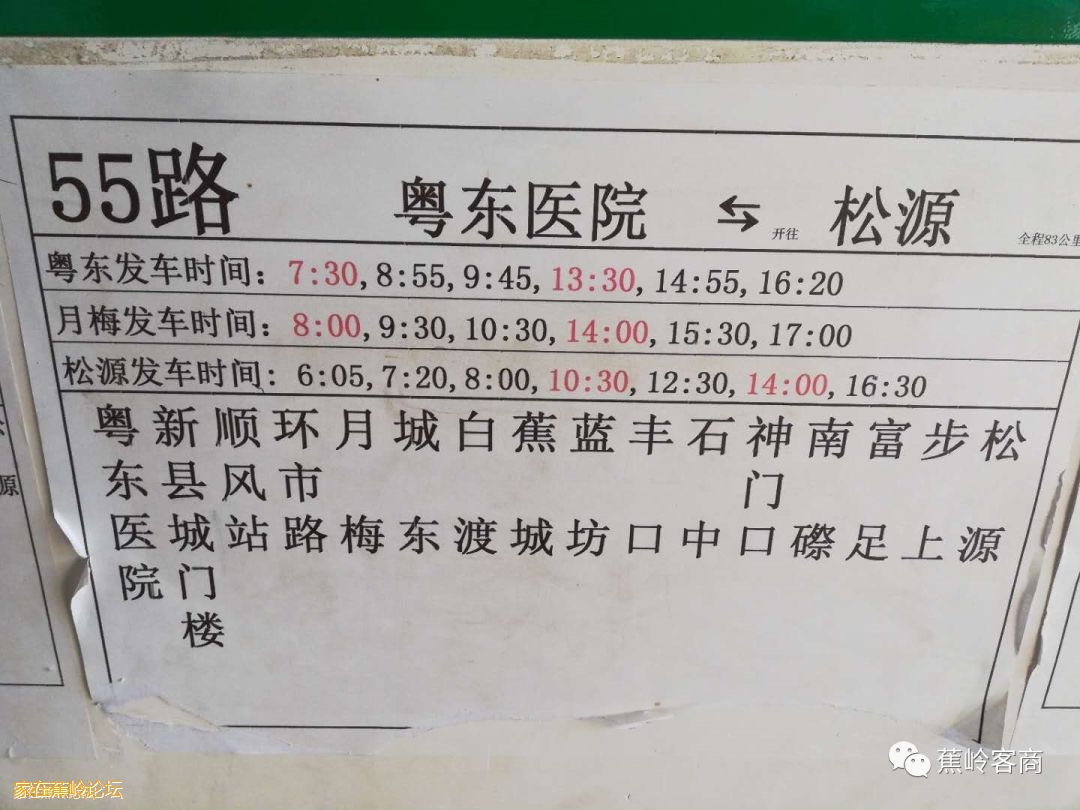 55路 粤东医院 ⇆ 开往 松源 全程83公里
粤东发车时间：7:30,8:55,9:45,13:30,14:55,16:20
月梅发车时间：8:00,9:30,10:30,14:00,15:30,17:00
松源发车时间：6:05,7:20,8:00,10:30,12:30,14:00,16:30
粤东医院
新县城门楼
顺风站
环市路
月梅
城东
白渡
蕉城
蓝坊
丰口
石中
神门口
南礤
富足
步上
松源
源
蕉岭客商
家在蕉岭论坛